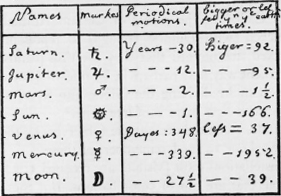 Names Markes Periodical motions. Bigger or les sed yn y earth times.
Saturn. ♄ Years - 30. Biger = 92.
Jupiter. ♃ - - - 12. - - - 95.
Mars. ♂ - - - 2. - - - 1 1/2
Sun. ☼ - - - 1. - - - 166.
Venus. ♀ Dayes: 348. Less = 37.
Mercury. ☿ - - - 339. - - - 1952.
Moon. ☽ - - - 27 1/2 - - - 39.